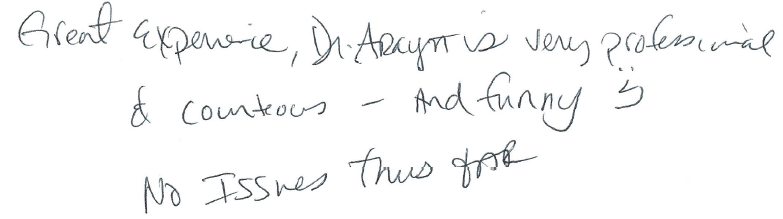 Great Experience, Dr. is very professional
& courteous - And funny ü
No Issues thus far